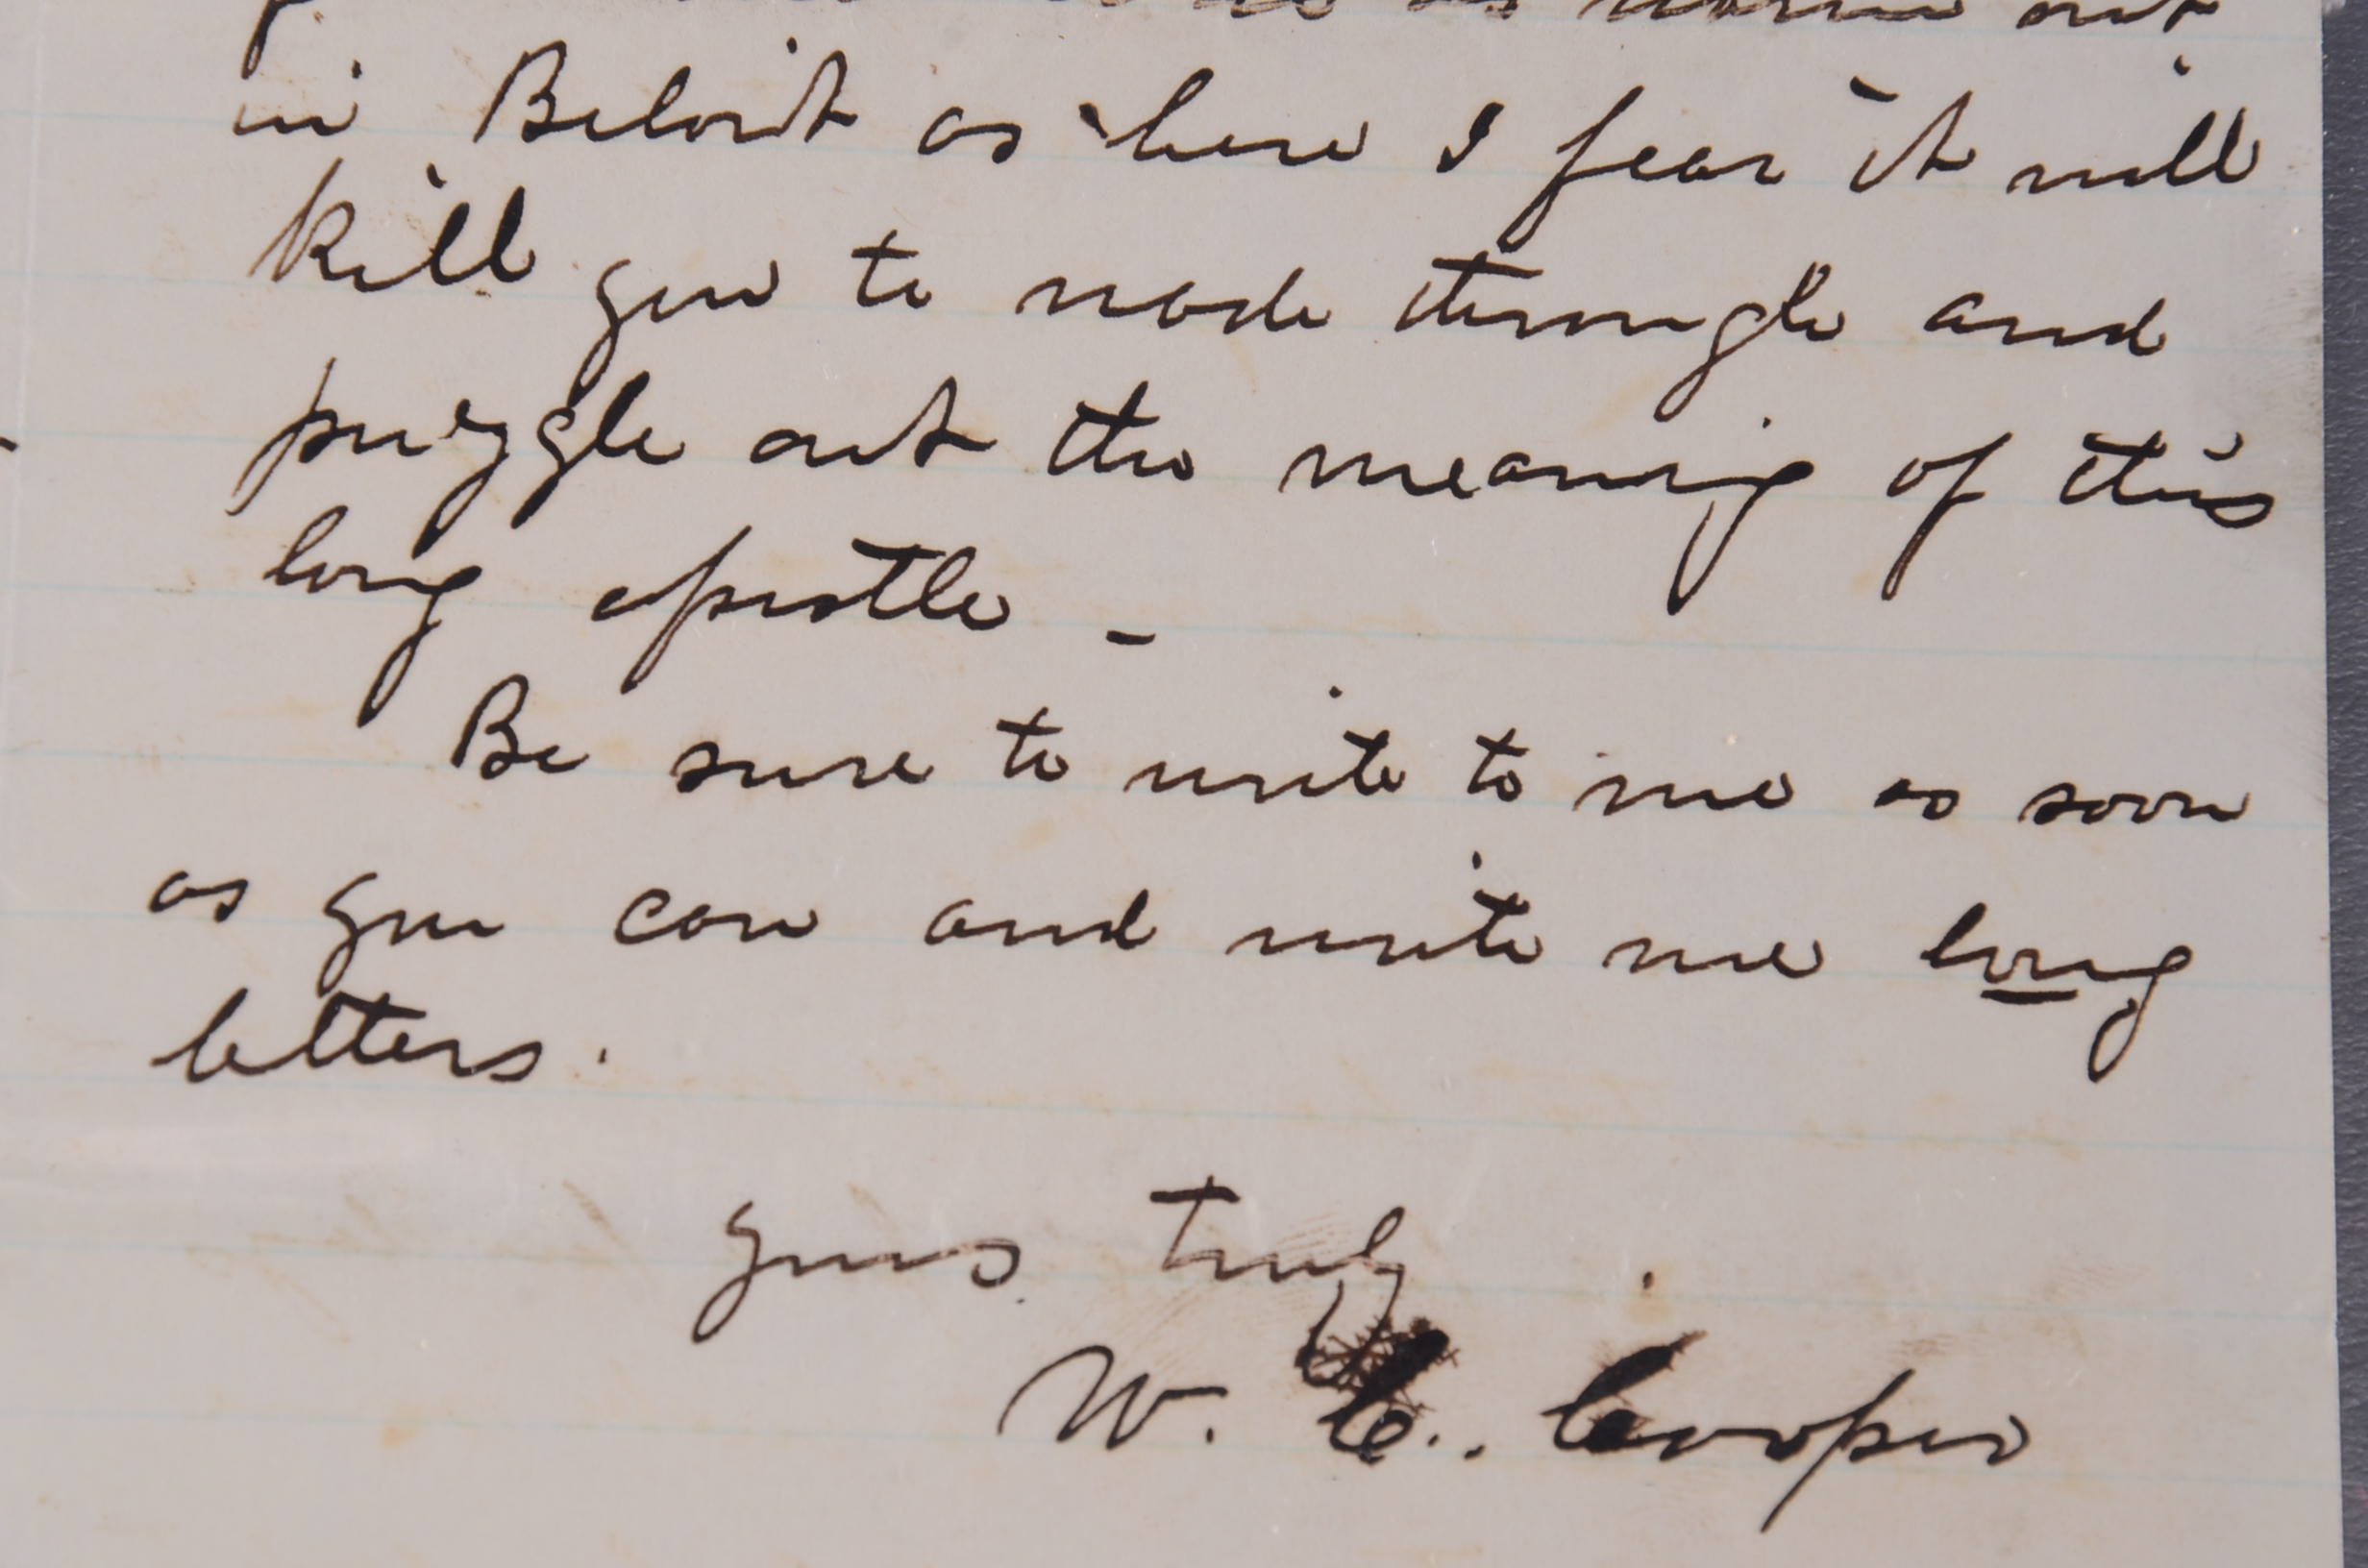 as warm out
in Beloit as here I fear it will
kill you to wade through and
puzzle out the meaning of this
long epistle -
Be sure to write to me as soon
as you can and write me long
letters.
Yours truly
W. C. Cooper